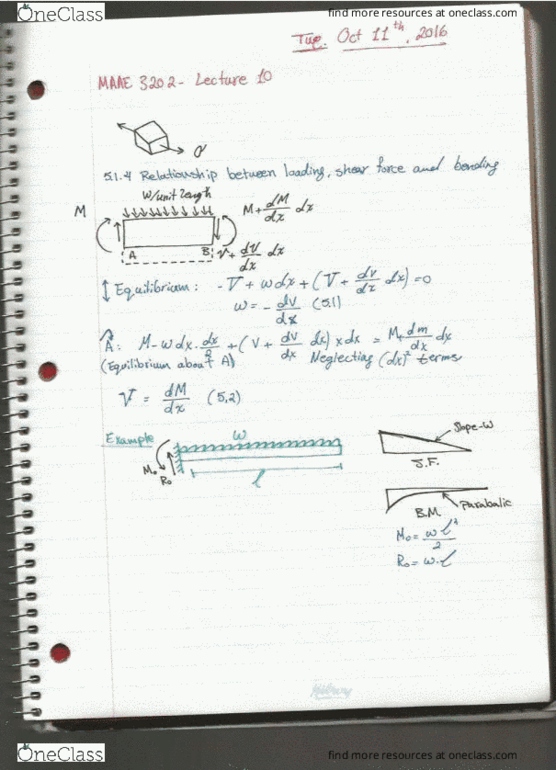 OneClass
find more resources at oneclass.com
Tue. Oct 11th, 2016
MAAE 3202 - Lecture 10
σ
5.1.4 Relationship between loading, shear force and bending
W/unit length
M
M + dM/dx dx
A
B
V + dV/dx dx
↕ Equilibrium: -V + wdx + (V + dv/dx dx) = 0
w = - dv/dx (5.1)
A: M - wdx · dx/2 + (V + dv/dx dx) × dx = M + dm/dx dx
(Equilibrium about A) Neglecting (dx)² terms
V = dM/dx (5.2)
Example
w
M₀
R₀
l
Slope-W
S.F.
Parabolic
B.M.
M₀ = wl²/2
R₀ = w·l
OneClass
find more resources at oneclass.com